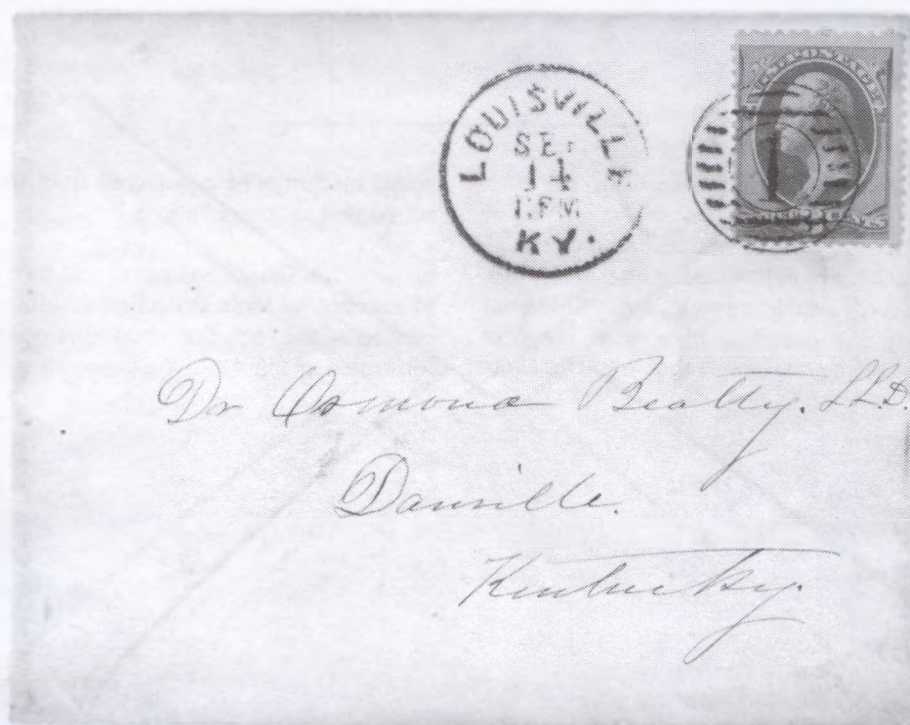 LOUISVILLE
SEP
14
11 PM
KY.
U.S. POSTAGE
1
Dr Ormond Beatty. LL.D.
Danville.
Kentucky.